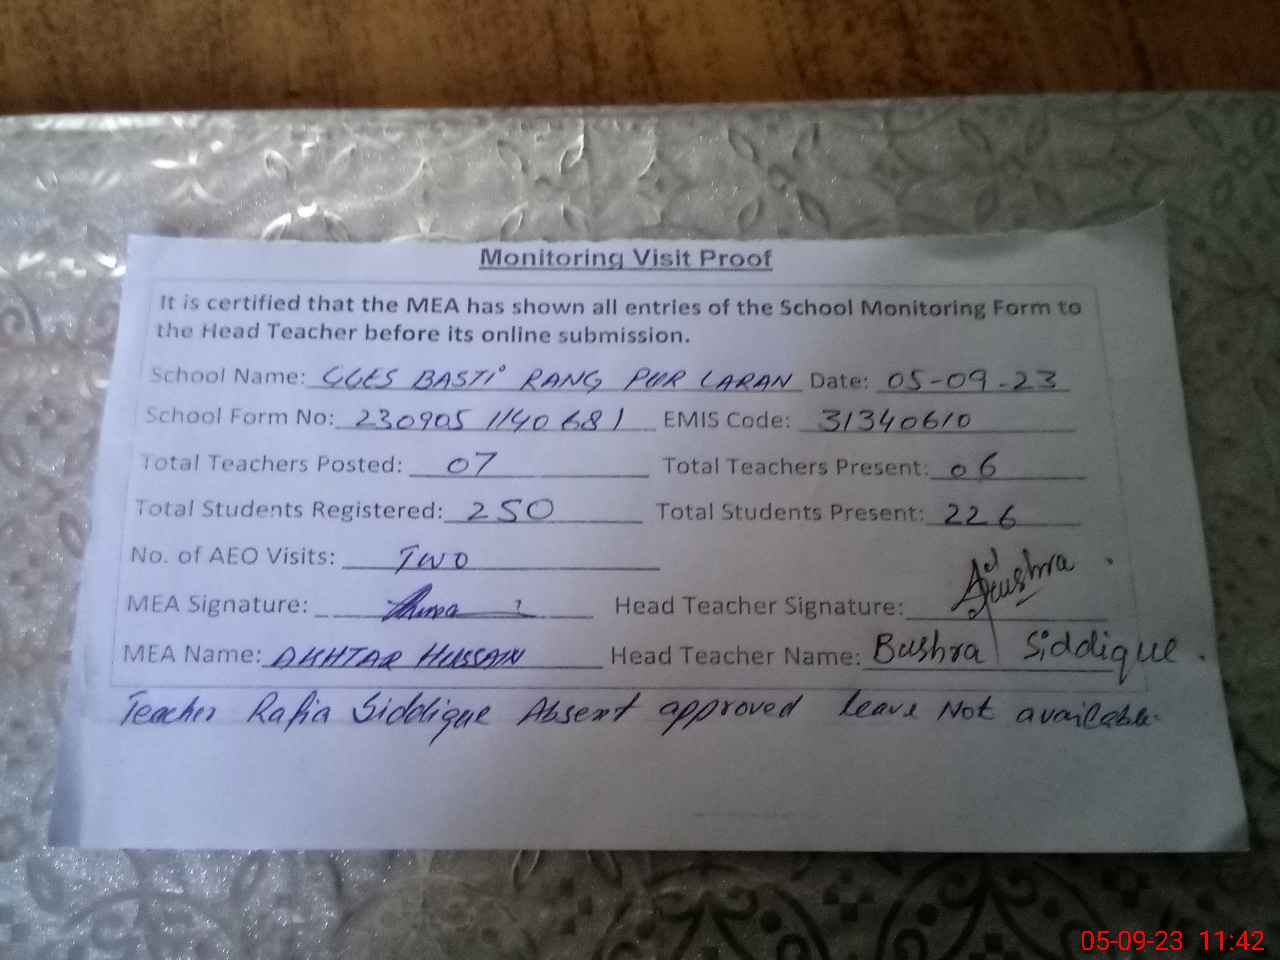 Monitoring Visit Proof
It is certified that the MEA has shown all entries of the School Monitoring Form to
the Head Teacher before its online submission.
School Name: GGES BASTI RANG PUR LARAN Date: 05-09-23
School Form No: 230905 1140681 EMIS Code: 31340610
Total Teachers Posted: 07 Total Teachers Present: 06
Total Students Registered: 250 Total Students Present: 226
No. of AEO Visits: TWO
MEA Signature: Head Teacher Signature: Bushra
MEA Name: AKHTAR HUSSAIN Head Teacher Name: Bushra Siddique.
Teacher Rafia Siddique Absent approved leave Not available.
05-09-23 11:42